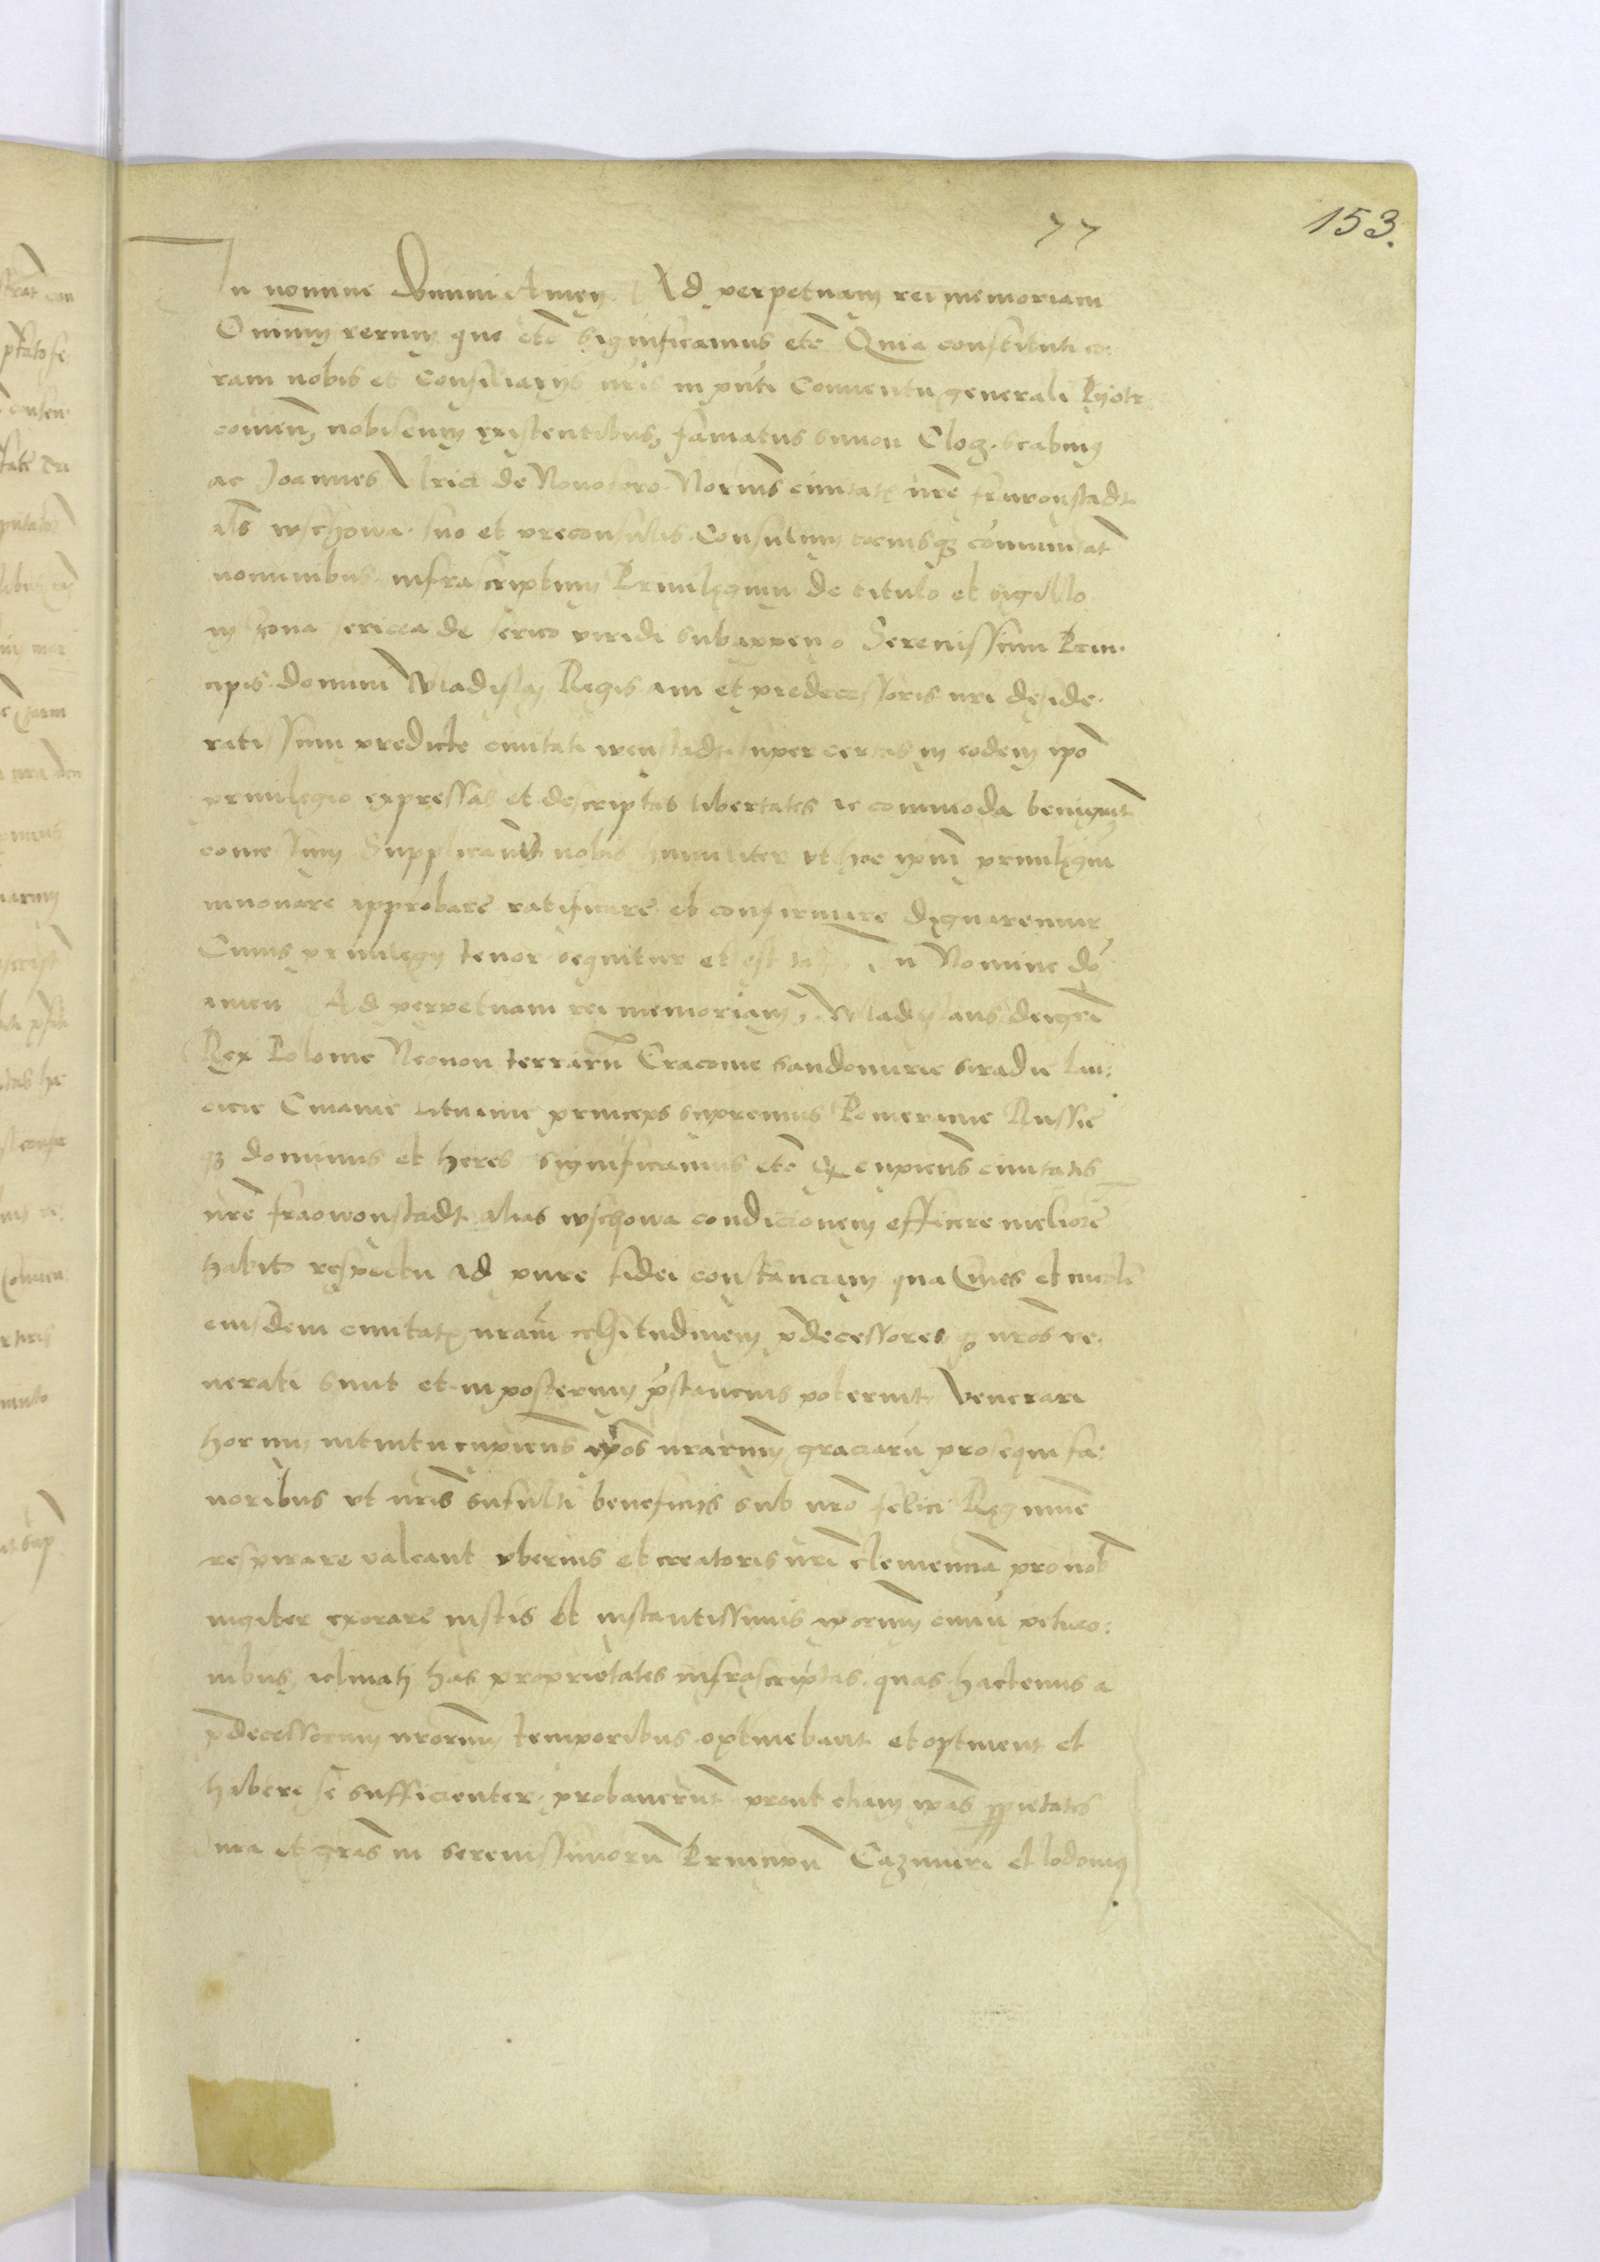 77
153.
In nomine domini Amen. Ad perpetuam rei memoriam
Omnium rerum que etc̄ significamus etc̄ Quia constituti co
ram nobis et Consiliarijs nr̄is in pn̄ti Conuentu generali Pijotr
couien̄ nobiscum existentibus, famatus Simon Clog. scabinus
ac Joannes Vlrici de Nouoforo Notarius ciuitat̄ nr̄e frawonstadt
als̄ wschowa suo et preconsulis Consulum tociusq3 cōmunitat̄
nominibus infrascriptum Priuilegium de titulo et sigillo
in zona sericea de serico viridi subappenso Serenissimi Prin
cipis domini Wladislaj Regis aui et predecessoris nri deside
ratissimi predicte ciuitati wenstadt super certas in eodem ip̄o
priuilegio expressas et descriptas libertates ac commoda benignit̄
concessum Supplicarūt nobis humiliter vt hoc ip̄m priuilegiu
innouare approbare ratificare et confirmare dignaremur
Cuius priuilegij tenor sequitur et est tal̄. In Nomine dō
amen Ad perpetuam rei memoriam, Wladislaus dei gr̄a
Rex Polonie Necnon terrarū Cracouie Sandomirie Siradie Lan:
cicie Cuiauie Lituanie princeps supremus Pomeranie Russie
q3 dominus et heres significamus etc̄ Q cupiens ciuitatis
nr̄e frawonstadt alias wschowa condicionem efficere meliorē
habito respectu ad pure fidei constanciam qua Ciues et incole
eiusdem ciuitat̄ nr̄am celsitudinem p̄decessores q3 nr̄os ve:
nerati sunt et in posterum prestancius poterint venerari
horum intuitu cupiens ip̄os nrarum graciarū prosequi fa:
uoribus vt nr̄is suffulti beneficijs sub nr̄o felici Regimine
respirare valeant vberius et creatoris nr̄i clemenciā pro nob̄
iugiter exorare iustis et instantissimis ip̄orum ciuiū peticio:
nibus, iclinati has proprietates infrascriptas quas hactenus a
p̄decessorum nrorum temporibus optinebant et optinent et
habere se sufficienter probauerūt prout etiam ip̄as p̄prietates
iura et gr̄as in serenissimorū Principū Cazimiri et lodouici